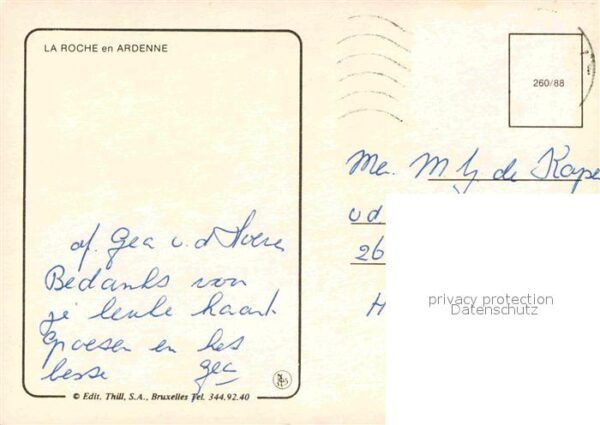 LA ROCHE en ARDENNE
260/88
Mej. M Y de Kape
v d
26
H
privacy protection
Datenschutz
af. Gea v. d Hoeven
Bedankt voor
je leuke kaart
groesen en het
beste Gea
© Edit. Thill, S.A., Bruxelles Tel. 344.92.40